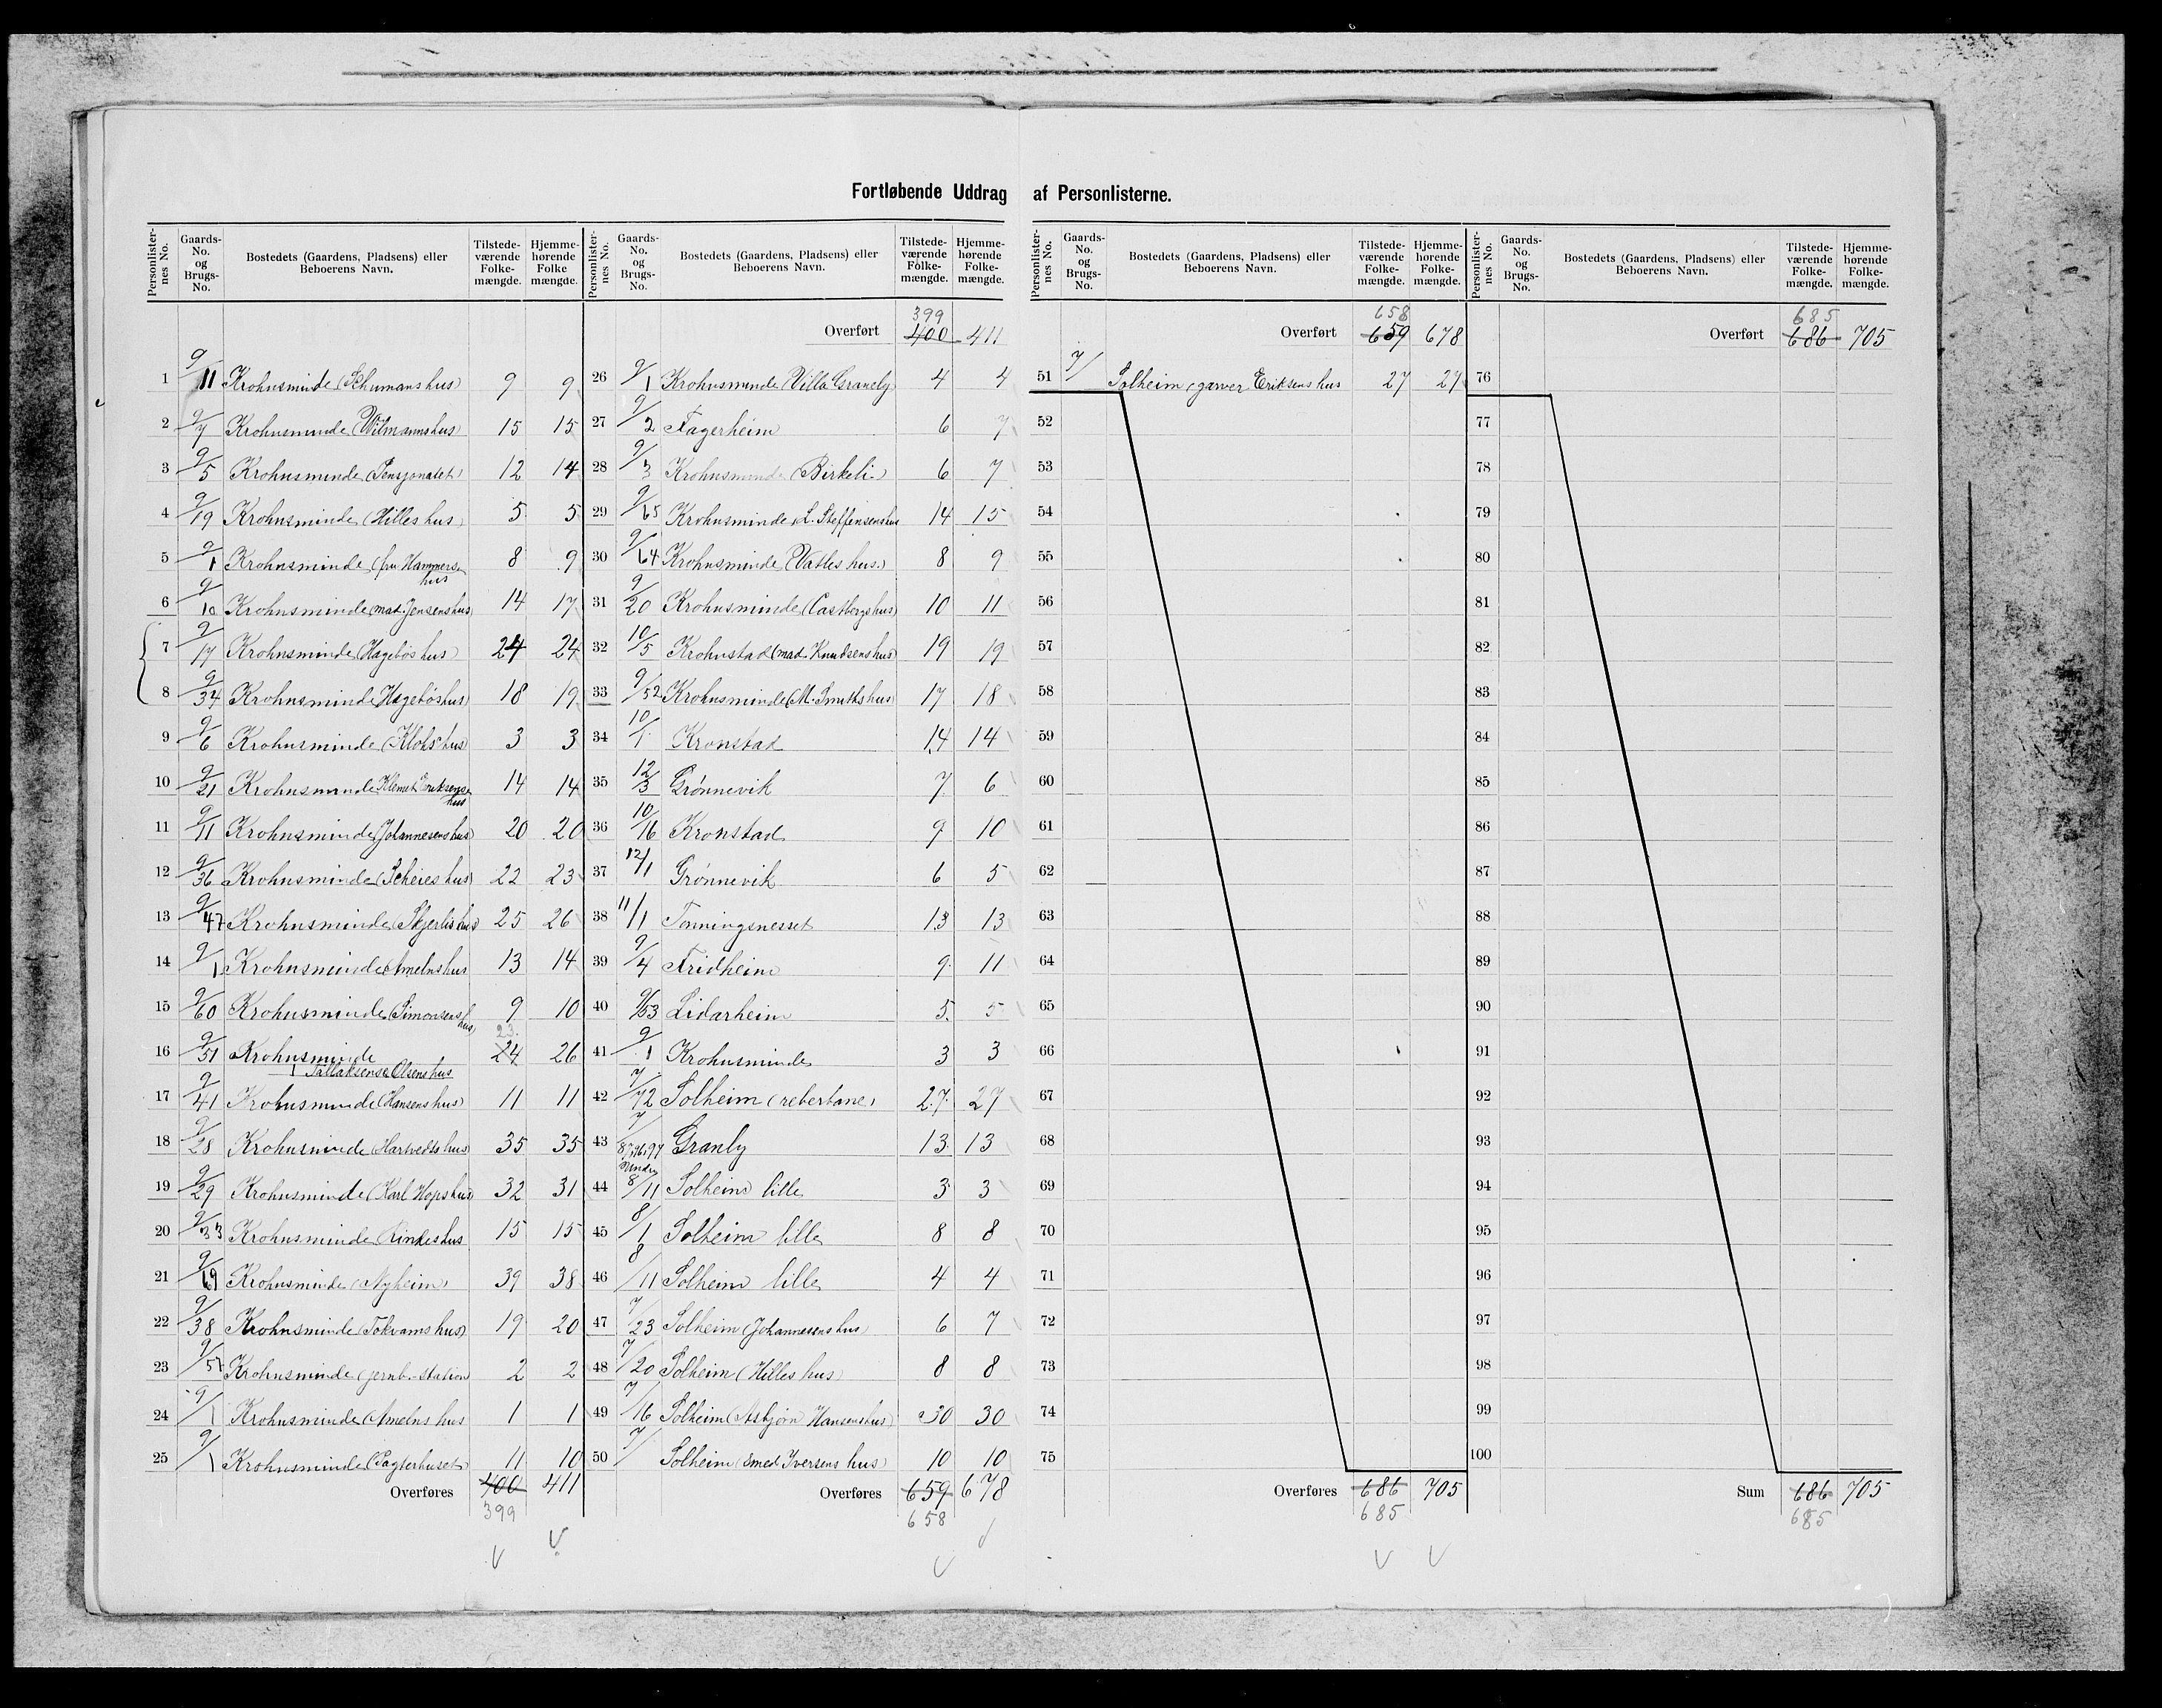 Fortløbende Uddrag af Personlisterne.
Personlister-nes No. | Gaards-No. og Brugs-No. | Bostedets (Gaardens, Pladsens) eller Beboerens Navn. | Tilstede-værende Folke-mængde. | Hjemme-hørende Folke mængde.
1 9/11 Krohnsminde (Schumans hus) 9 9
2 9/7 Krohnsminde (Wilmanns hus) 15 15
3 9/5 Krohnsminde (Pensjonatet) 12 14
4 9/19 Krohnsminde (Hilles hus) 5 5
5 9/1 Krohnsminde (fru Hammers hus 8 9
6 9/10 Krohnsminde (mad. Jensens hus) 14 17
7 9/17 Krohnsminde (Hagebös hus) 24 24
8 9/34 Krohnsminde (Hagebös hus) 18 19
9 9/6 Krohnsminde (Klohs hus) 3 3
10 9/21 Krohnsminde Klemet Eriksens hus 14 14
11 9/11 Krohnsminde (Johannesens hus) 20 20
12 9/36 Krohnsminde (Scheies hus) 22 23
13 9/47 Krohnsminde (Skjerlis hus) 25 26
14 9/1 Krohnsminde (Amelns hus 13 14
15 9/60 Krohnsminde (Simonsens hus) 9 10
16 9/51 Krohnsminde Tallaksens & Olsens hus 24 23 26
17 9/41 Krohnsminde (Hansens hus) 11 11
18 9/28 Krohnsminde (Hartvedts hus) 35 35
19 9/29 Krohnsminde (Karl Hops hus) 32 31
20 9/33 Krohnsminde (Rindes hus 15 15
21 9/69 Krohnsminde (Nyheim) 39 38
22 9/38 Krohnsminde (Tokvams hus) 19 20
23 9/57 Krohnsminde (jernb.-station 2 2
24 9/1 Krohnsminde (Amelns hus 1 1
25 9/1 Krohnsminde (Pagterhuset) 11 10
Overføres 400 411
399
Personlister-nes No. | Gaards-No. og Brugs-No. | Bostedets (Gaardens, Pladsens) eller Beboerens Navn. | Tilstede-værende Folke-mængde. | Hjemme-hørende Folke-mængde.
399
Overført 400 411
26 9/1 Krohnsminde (Villa Granely) 4 4
27 9/2 Fagerheim 6 7
28 9/3 Krohnsminde (Birkeli) 6 7
29 9/65 Krohnsminde (L. Steffensens hus 14 15
30 9/64 Krohnsminde (Vatles hus.) 8 9
31 9/20 Krohnsminde (Castbergs hus) 10 11
32 10/5 Krohnstad (mad. Knudsens hus) 19 19
33 9/52 Krohnsminde (M. Smiths hus) 17 18
34 10/1 Kronstad 14 14
35 12/3 Grønnevik 7 6
36 10/16 Kronstad 9 10
37 12/1 Grønnevik 6 5
38 11/1 Tonningsnesset 13 13
39 9/4 Fridheim 9 11
40 9/53 Lidarheim 5 5
41 9/1 Krohnsminde 3 3
42 7/72 Solheim (reberbane) 27 27
43 7/ Granly 13 13
44 8/11 Solheim lille 3 3
45 8/1 Solheim lille 8 8
46 8/11 Solheim lille 4 4
47 7/23 Solheim (Johannesens hus) 6 7
48 7/20 Solheim (Hilles hus) 8 8
49 7/16 Solheim (Asbjørn Hansens hus) 30 30
50 7/ Solheim (smed Iversens hus) 10 10
Overføres 659 678
658
Personlister-nes No. | Gaards-No. og Brugs-No. | Bostedets (Gaardens, Pladsens) eller Beboerens Navn. | Tilstede-værende Folke-mængde. | Hjemme-hørende Folke-mængde.
658
Overført 659 678
51 7/ Solheim (garver Eriksens hus 27 27
52
53
54
55
56
57
58
59
60
61
62
63
64
65
66
67
68
69
70
71
72
73
74
75
Overføres 686 705
685
Personlister-nes No. | Gaards-No. og Brugs-No. | Bostedets (Gaardens, Pladsens) eller Beboerens Navn. | Tilstede-værende Folke-mængde. | Hjemme-hørende Folke-mængde.
685
Overført 686 705
76
77
78
79
80
81
82
83
84
85
86
87
88
89
90
91
92
93
94
95
96
97
98
99
100
Sum 686 705
685